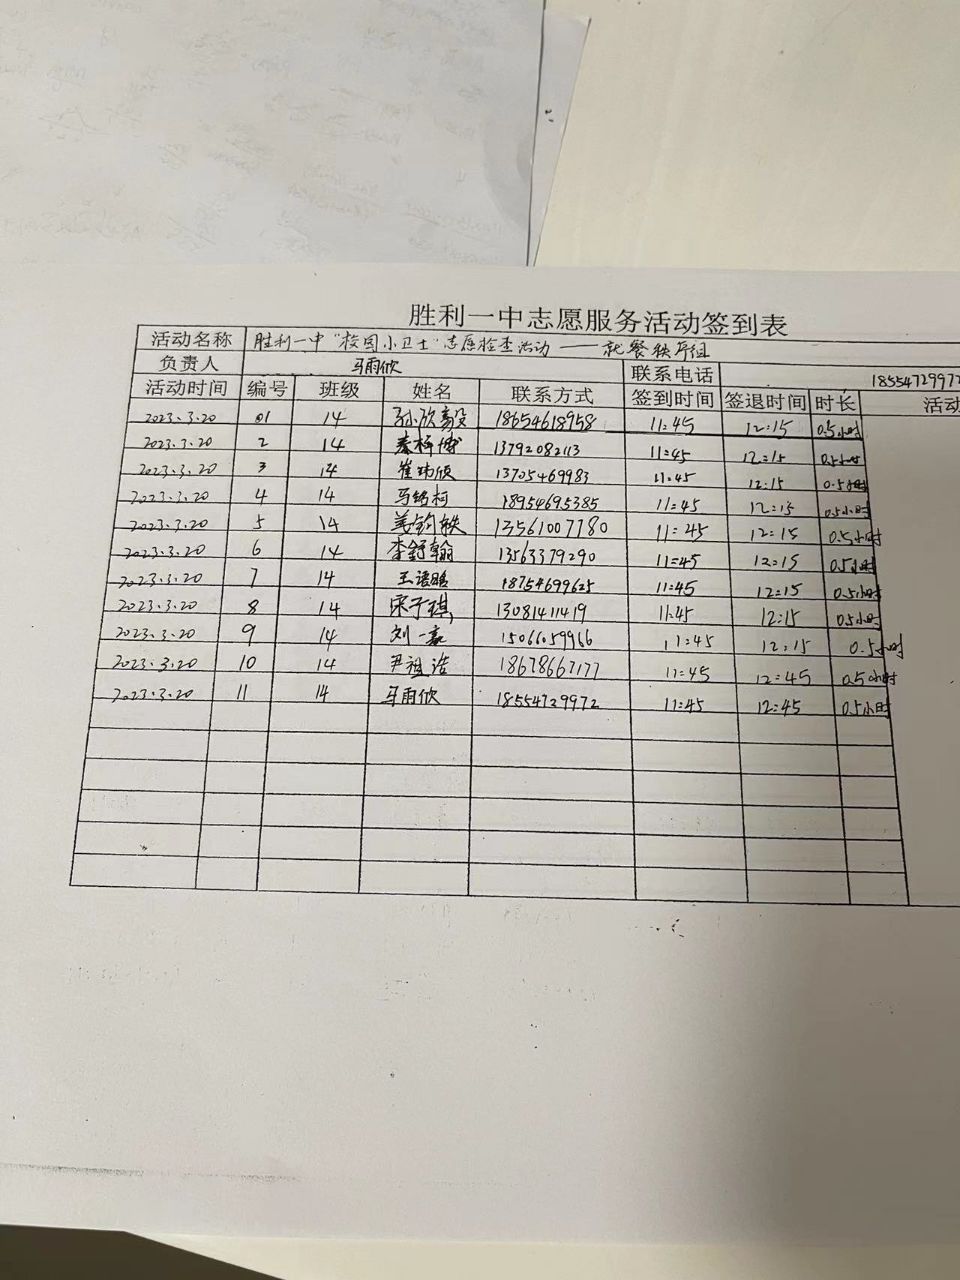 胜利一中志愿服务活动签到表
活动名称 胜利一中"校园小卫士"志愿检查活动——就餐秩序组
负责人 马雨欣 联系电话 1855472997
活动时间 编号 班级 姓名 联系方式 签到时间 签退时间 时长 活动
2023.3.20 01 14 孙欣毅 18654618958 11:45 12:15 0.5小时
2023.3.20 2 14 秦梓博 13792082113 11:45 12:15 0.5小时
2023.3.20 3 14 崔 13705469983 11:45 12:15 0.5小时
2023.3.20 4 14 马铭柯 18954695385 11:45 12:15 0.5小时
2023.3.20 5 14 姜钧轶 13561007780 11:45 12:15 0.5小时
2023.3.20 6 14 李舒翰 13563379290 11:45 12:15 0.5小时
2023.3.20 7 14 王语晗 18754699625 11:45 12:15 0.5小时
2023.3.20 8 14 宋子琪 13081411419 11:45 12:15 0.5小时
2023.3.20 9 14 刘一嘉 15066059966 11:45 12:15 0.5小时
2023.3.20 10 14 尹祖浩 18678667177 11:45 12:45 0.5小时
2023.3.20 11 14 马雨欣 18554729972 11:45 12:45 0.5小时